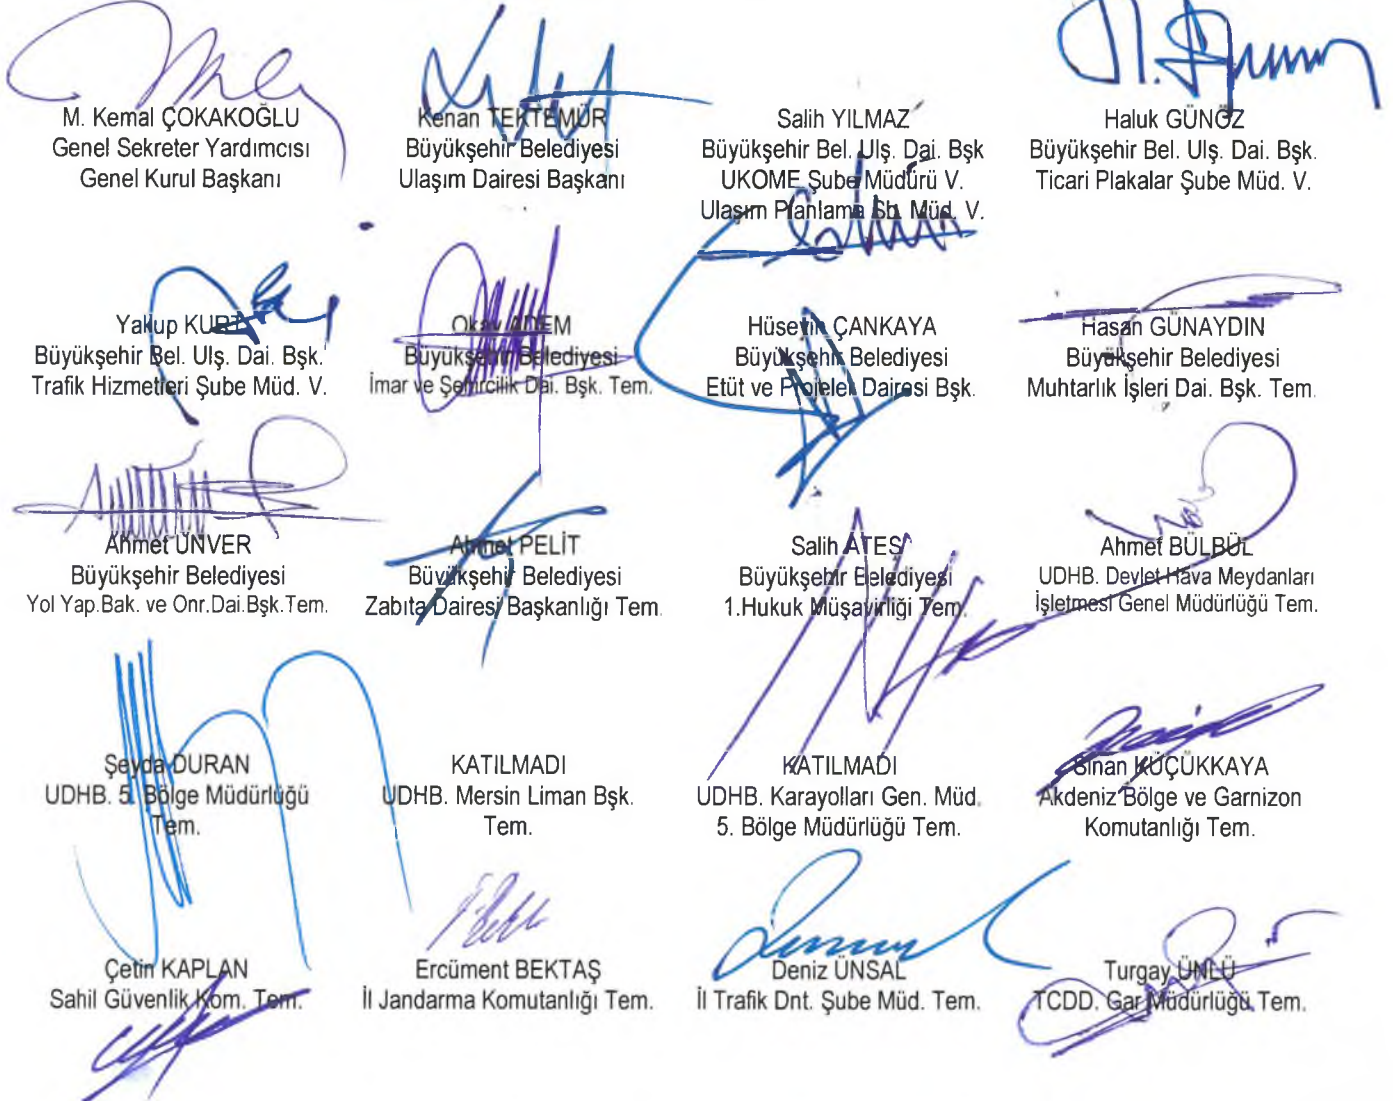 M. Kemal ÇOKAKOĞLU
Genel Sekreter Yardımcısı
Genel Kurul Başkanı
Kenan TEKTEMÜR
Büyükşehir Belediyesi
Ulaşım Dairesi Başkanı
Salih YILMAZ
Büyükşehir Bel. Ulş. Dai. Bşk
UKOME Şube Müdürü V.
Ulaşım Planlama Şb. Müd. V.
Haluk GÜNGÖZ
Büyükşehir Bel. Ulş. Dai. Bşk.
Ticari Plakalar Şube Müd. V.
Yakup KURT
Büyükşehir Bel. Ulş. Dai. Bşk.
Trafik Hizmetleri Şube Müd. V.
Okay ADEM
Büyükşehir Belediyesi
İmar ve Şehircilik Dai. Bşk. Tem.
Hüseyin ÇANKAYA
Büyükşehir Belediyesi
Etüt ve Projeler Dairesi Bşk.
Hasan GÜNAYDIN
Büyükşehir Belediyesi
Muhtarlık İşleri Dai. Bşk. Tem.
Ahmet ÜNVER
Büyükşehir Belediyesi
Yol Yap.Bak. ve Onr.Dai.Bşk.Tem.
Ahmet PELİT
Büyükşehir Belediyesi
Zabıta Dairesi Başkanlığı Tem.
Salih ATEŞ
Büyükşehir Belediyesi
1.Hukuk Müşavirliği Tem.
Ahmet BÜLBÜL
UDHB. Devlet Hava Meydanları
İşletmesi Genel Müdürlüğü Tem.
Şeyda DURAN
UDHB. 5. Bölge Müdürlüğü
Tem.
KATILMADI
UDHB. Mersin Liman Bşk.
Tem.
KATILMADI
UDHB. Karayolları Gen. Müd.
5. Bölge Müdürlüğü Tem.
Sinan KÜÇÜKKAYA
Akdeniz Bölge ve Garnizon
Komutanlığı Tem.
Çetin KAPLAN
Sahil Güvenlik Kom. Tem.
Ercüment BEKTAŞ
İl Jandarma Komutanlığı Tem.
Deniz ÜNSAL
İl Trafik Dnt. Şube Müd. Tem.
Turgay ÜNLÜ
TCDD. Gar Müdürlüğü Tem.